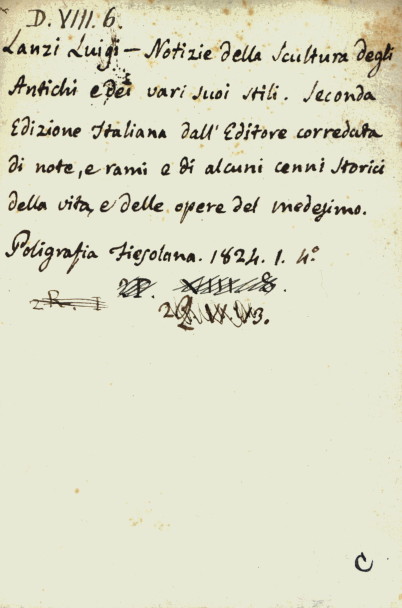 D. VIII. 6.
Lanzi Luigi — Notizie della Scultura degli
Antichi e dei vari suoi stili. Seconda
Edizione Italiana dall' Editore corredata
di note, e rami e di alcuni cenni Storici
della vita, e delle opere del medesimo.
Poligrafia Fiesolana. 1824. 1. 4.º
C